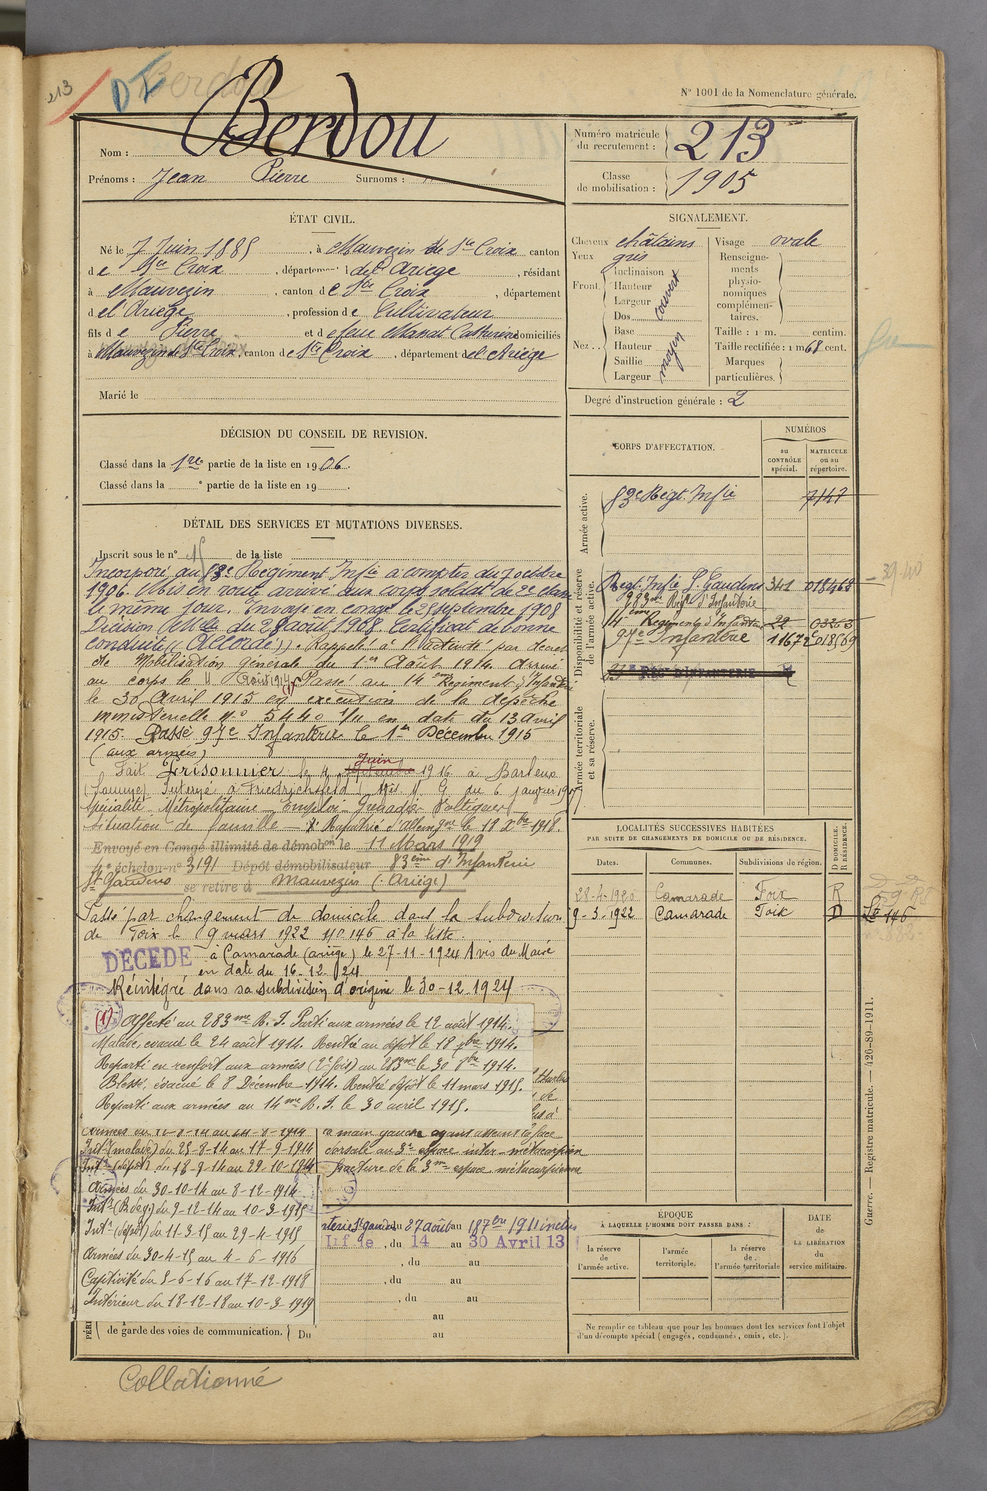 213
Berdou
N° 1001 de la Nomenclature générale.
Nom : Berdou
Prénoms : Jean Pierre Surnoms :
Numéro matricule du recrutement : 213
Classe de mobilisation : 1905
ÉTAT CIVIL.
Né le 7 Juin 1885, à Mauvezin de Ste Croix canton
de Ste Croix, département de l'Ariège, résidant
à Mauvezin, canton de Ste Croix, département
del Ariège, profession de Cultivateur
fils de Pierre et de feue Manat Catherine domiciliés
à Mauvezin de Ste Croix, canton de Ste Croix, département del Ariège
Marié le
SIGNALEMENT.
Cheveux châtains
Yeux gris
Front. Inclinaison
Hauteur
Largeur
couvert
Nez.. Dos
Base
Hauteur
Saillie
Largeur
moyen
Visage ovale
Renseignements physionomiques complémentaires.
Taille : 1 m. centim.
Taille rectifiée : 1 m 68 cent.
Marques particulières.
Degré d'instruction générale : 2
DÉCISION DU CONSEIL DE REVISION.
Classé dans la 1re partie de la liste en 1906.
Classé dans la e partie de la liste en 19 .
CORPS D'AFFECTATION.
NUMÉROS
au CONTRÔLE spécial.
MATRICULE ou au répertoire.
Armée active.
83e Régt Infie 7147
Disponibilité et réserve de l'armée active.
Régt Infie St Gaudens 341 018468
283me Régt d'Infanterie
14ème Régiment d'Infanterie
97e Infanterie
RÉG. D'INFANTERIE
Armée territoriale et sa réserve.
39-40
DÉTAIL DES SERVICES ET MUTATIONS DIVERSES.
Inscrit sous le n° 15 de la liste
Incorporé au 83e Régiment Infie à compter du 7 octobre
1906. Mis en route arrivé aux corps soldat de 2e classe
le même jour. Envoyé en congé le 25 septembre 1908
Décision Mlle du 28 août 1908. Certificat de bonne
conduite (( Accordé )). Rappelé à l'activité par décret
de Mobilisation générale du 1er Août 1914. Arrivé
au corps le 11 août 1914 (1) Passé au 14ème Régiment d'Infanterie
le 30 Avril 1915 en exécution de la depêche
ministérielle n° 5440 1/11 en date du 13 avril
1915. Passé 97e Infanterie le 1er Decembre 1915
(aux armées)
Fait Prisonnier le 4 Juin 1916 à Barleux
(Somme). Interné à Friedrichsfeld (Avis M. G. du 6 janvier 1917
Spécialité Métropolitaine Emploi Grenadier Voltigeur
Situation de famille Rapatrié d'Allemgne le 18 Xbre 1918.
Envoyé en Congé illimité de démobon le 11 Mars 1919
4e échelon - n° 3191 Dépôt démobilisateur 83ème d'Infanterie
St Gaudens se retire à Mauvezin (Ariège)
Passé par changement de domicile dans la subdivision
de Foix le 9 mars 1922 No 146 à la liste.
DÉCÉDÉ à Camarade (ariège) le 27-11-1924 Avis du Maire
en date du 16-12-24
Réintégré dans sa subdivision d'origine le 30-12-1924
(1) Affecté au 283me R. I. Parti aux armées le 12 août 1914.
Malade, évacué le 24 août 1914. Rentré au dépôt le 18 7bre 1914.
Reparti en renfort aux armées (2e fois) au 283me le 30 8bre 1914.
Blessé, évacué le 8 Décembre 1914. Rentré dépôt le 11 mars 1915.
Reparti aux armées au 14me R. I. le 30 avril 1915.
Armées du 12-8-14 au 24-8-1914
Intr (malade) du 25-8-14 au 17-9-1914
Intr (dépôt) du 18-9-14 au 29-10-1914
Armées du 30-10-14 au 8-12-1914
Intr (Blessé) du 9-12-14 au 10-3-1915
Intr (dépôt) du 11-3-15 au 29-4-1915
Armées du 30-4-15 au 4-6-1916
Captivité du 5-6-16 au 17-12-1918
Intérieur du 18-12-18 au 10-3-1919
la main gauche ayant atteint la face
dorsale au 3e espace inter-métacarpien
fracture de la 3me espace métacarpienne
du 27 août au 18 7bre 1911 inclus
, du 14 au 30 Avril 13
, du au
, du au
, du au
au
de garde des voies de communication. Du au
LOCALITÉS SUCCESSIVES HABITÉES
PAR SUITE DE CHANGEMENTS DE DOMICILE OU DE RÉSIDENCE.
Dates. Communes. Subdivisions de région. D DOMICILE. R RÉSIDENCE.
28-4-1920 Camarade Foix R
9-3-1922 Camarade Foix D
146
ÉPOQUE
À LAQUELLE L'HOMME DOIT PASSER DANS :
la réserve de l'armée active.
l'armée territoriale.
la réserve de l'armée territoriale
DATE
de
LA LIBÉRATION
du
service militaire.
Ne remplir ce tableau que pour les hommes dont les services font l'objet
d'un décompte spécial (engagés, condamnés, omis, etc.).
Guerre. — Registre matricule. — 426-89-1911.
Collationné